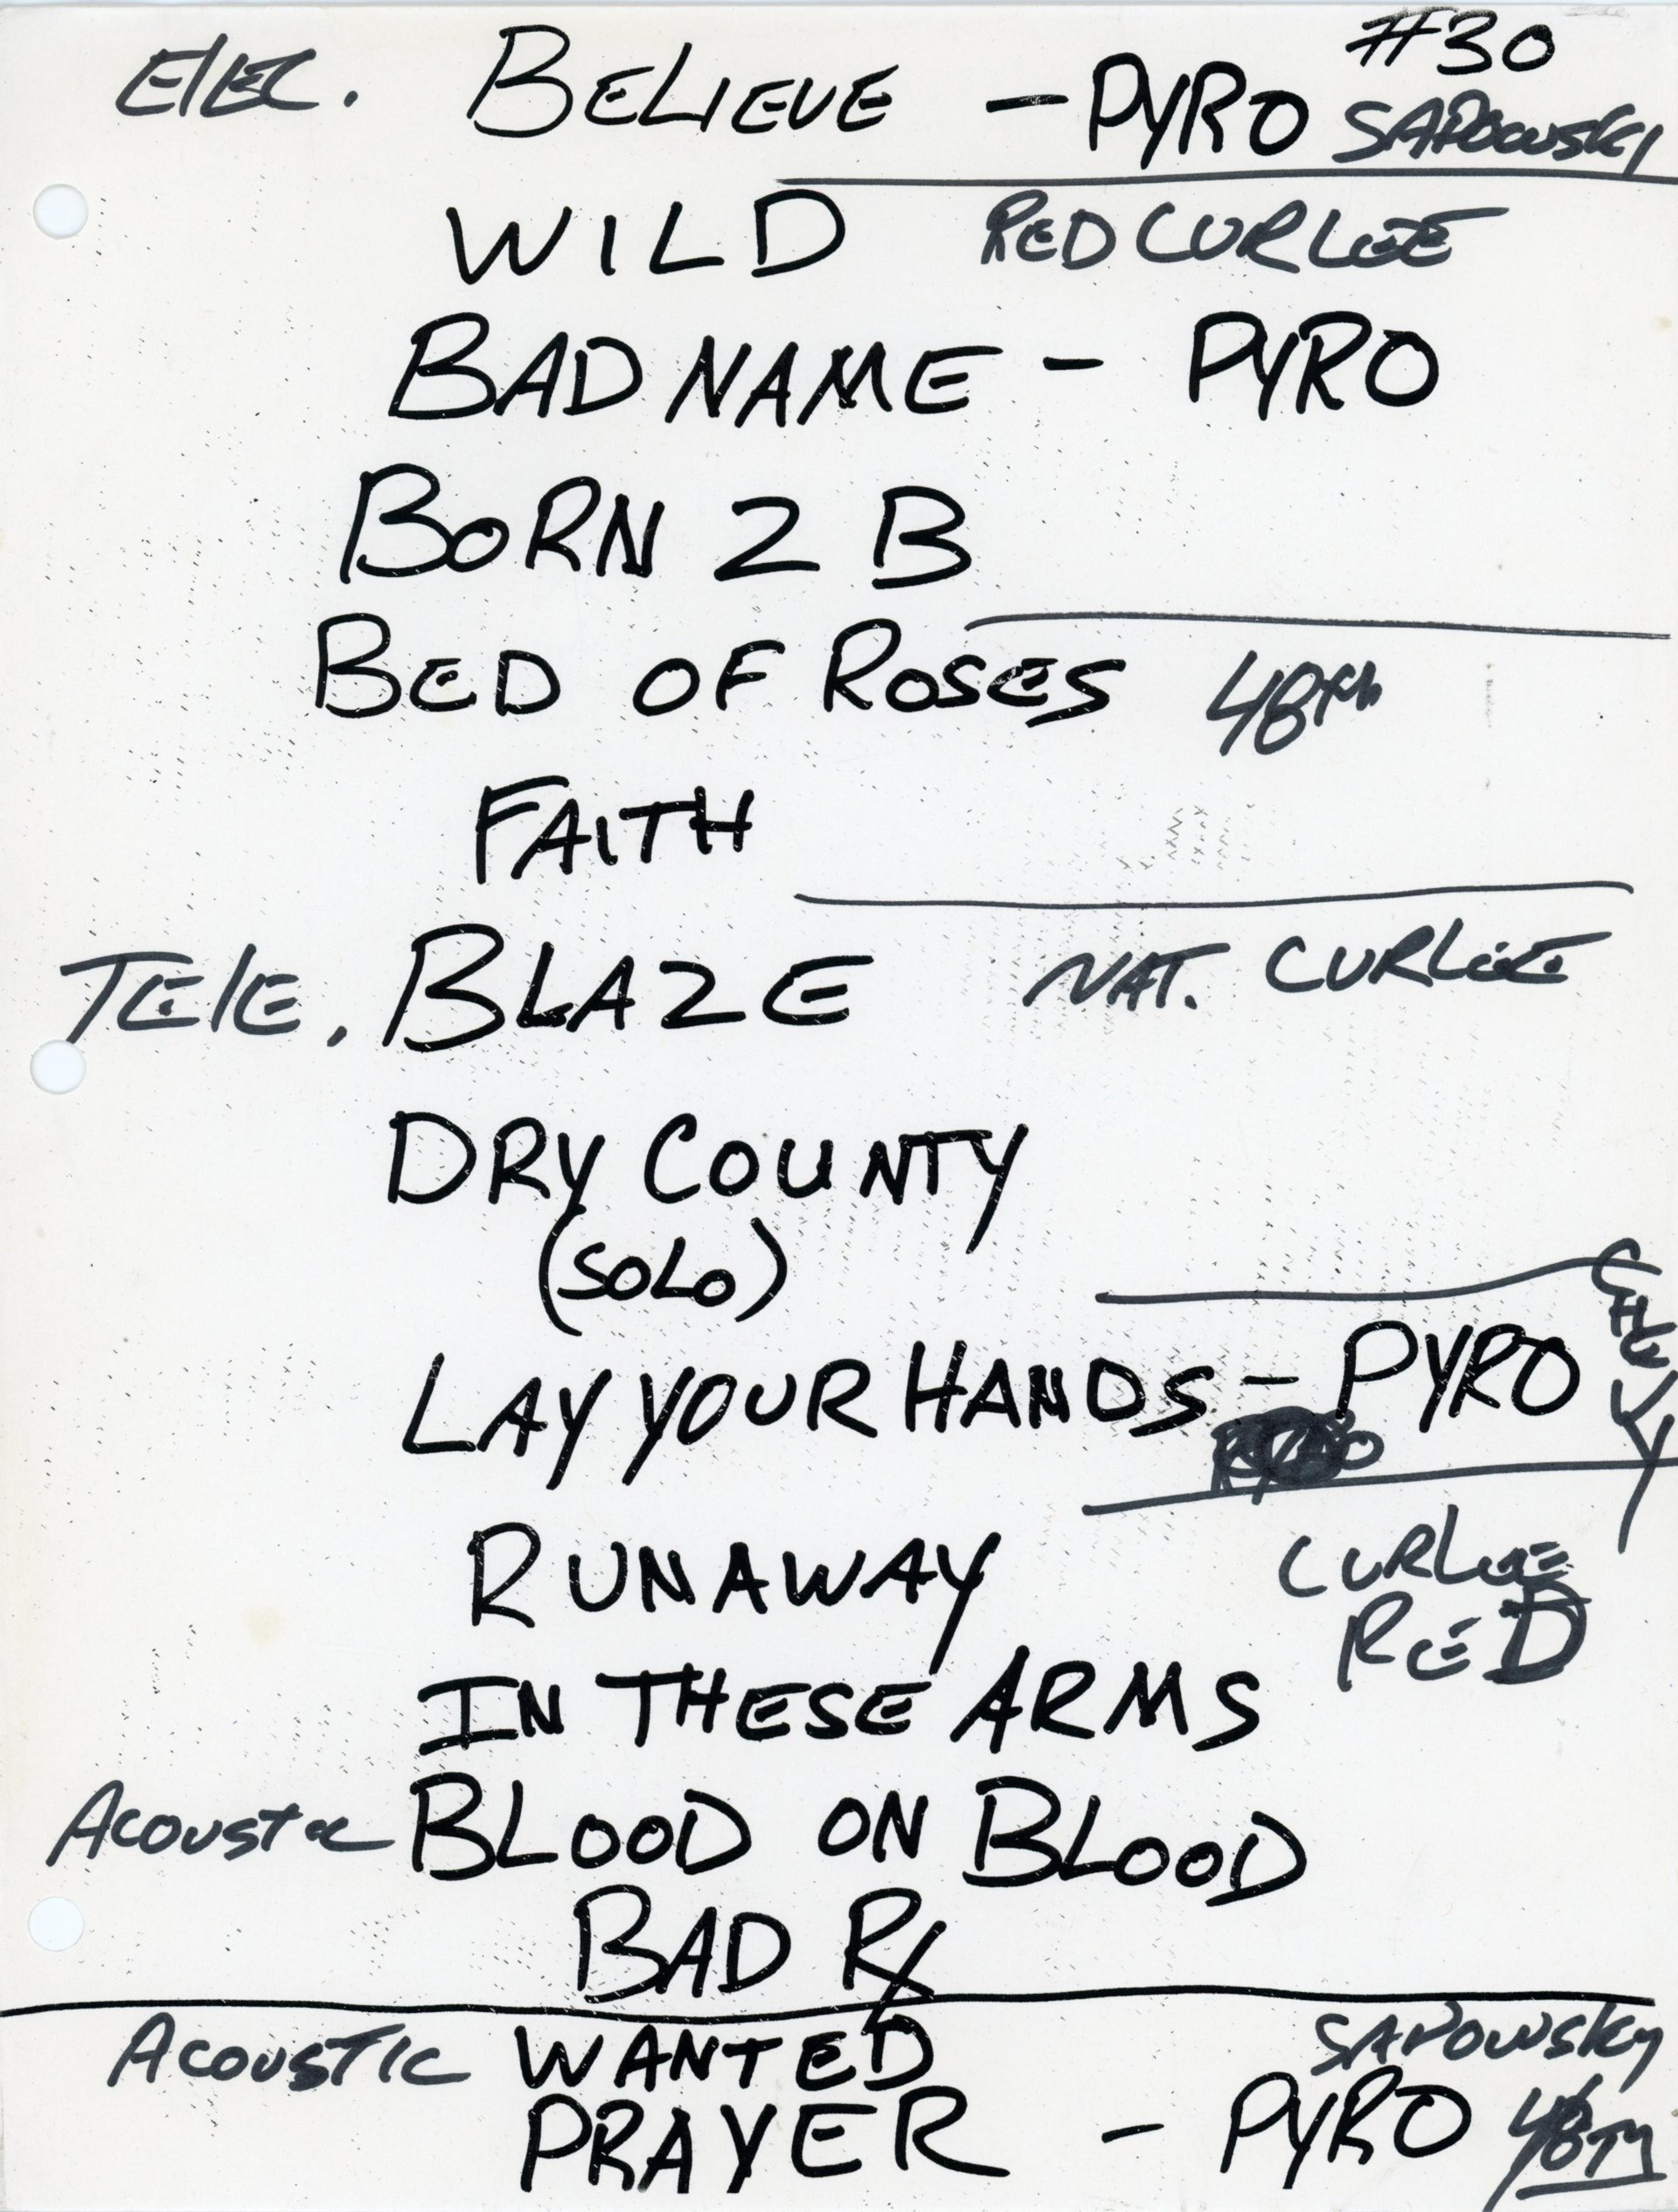 #30
ELEC. BELIEVE - PYRO SAPOWSKI
WILD RED CURLEE
BAD NAME - PYRO
BORN 2 B
BED OF ROSES 48th
FAITH
TELE. BLAZE NAT. CURLEE
DRY COUNTY
(SOLO)
LAY YOUR HANDS - PYRO CHEVY
RUNAWAY CURLEE
RED
IN THESE ARMS
ACOUSTIC BLOOD ON BLOOD
BAD RX
ACOUSTIC WANTED SAPOWSKY
PRAYER - PYRO 48TH